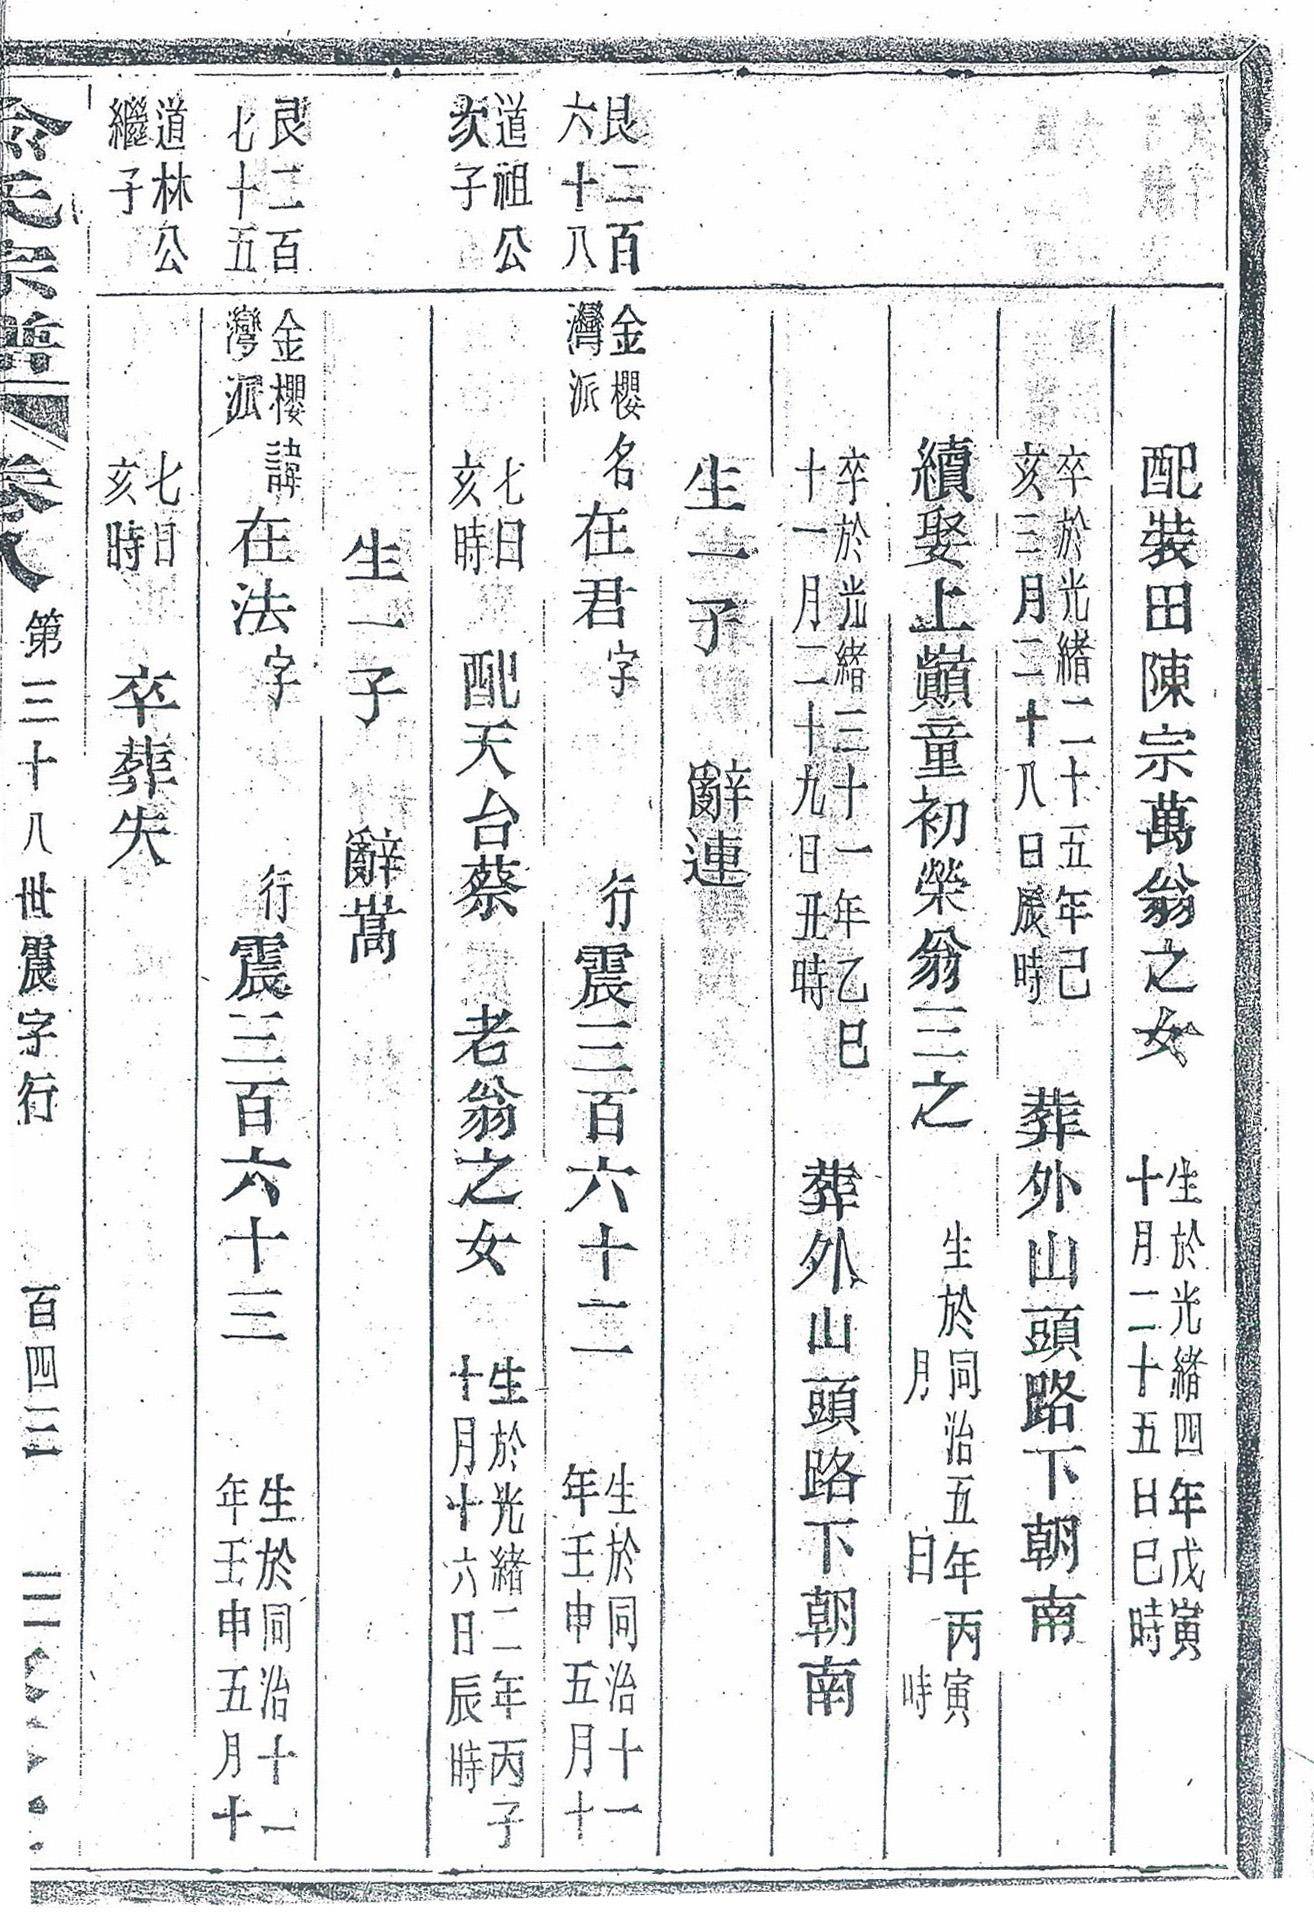 配裝田陳宗萬翁之女 生於光緒四年戊寅十月二十五日巳時
卒於光緒二十五年己亥三月二十八日辰時 葬外山頭路下朝南
續娶上巔童初榮翁三之 生於同治五年丙寅 月 日 時
卒於光緒三十一年乙巳十一月二十九日丑時 葬外山頭路下朝南
生一子 辭連
艮二百六十八
金櫻灣派 名在君字 行震三百六十二 生於同治十一年壬申五月十
道祖公次子
七日亥時 配天台蔡 老翁之女 生於光緒二年丙子十月十六日辰時
生一子 辭嵩
艮二百七十五
金櫻灣派 諱在法字 行震三百六十三 生於同治十一年壬申五月十
道林公繼子
七日亥時 卒葬失
俞氏宗譜 卷八 第三十八世震字行 百四三